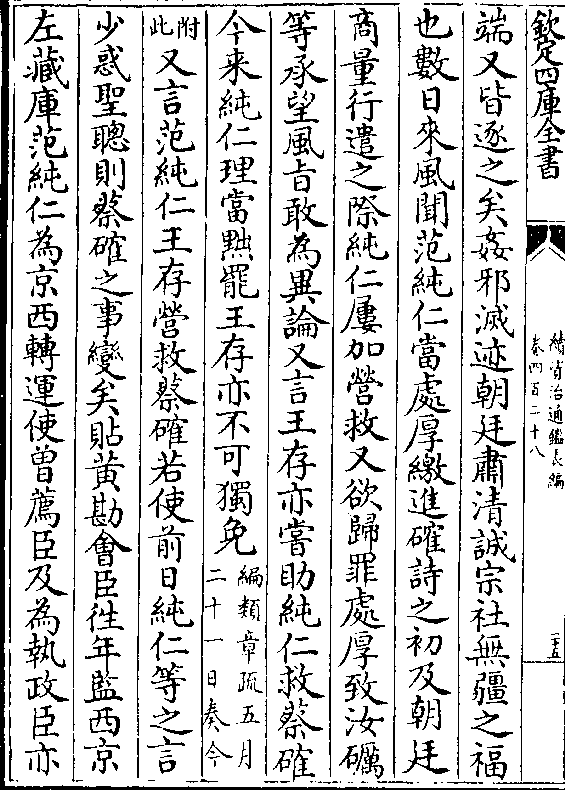 欽定四庫全書
續資治通鑑長編
卷四百二十八
二十五
端又皆逐之矣姦邪滅迹朝廷肅清誠宗社無疆之福
也數日來風聞范純仁當處厚繳進確詩之初及朝廷
商量行遣之際純仁屢加營救又欲歸罪處厚致汝礪
等承望風旨敢為異論又言王存亦嘗助純仁救蔡確
今来純仁理當黜罷王存亦不可獨免
編類章疏五月
二十一日奏今
附
此
又言范純仁王存營救蔡確若使前日純仁等之言
少惑聖聰則蔡確之事變矣貼黄勘會臣徃年監西京
左藏庫范純仁為京西轉運使曽薦臣及為執政臣亦